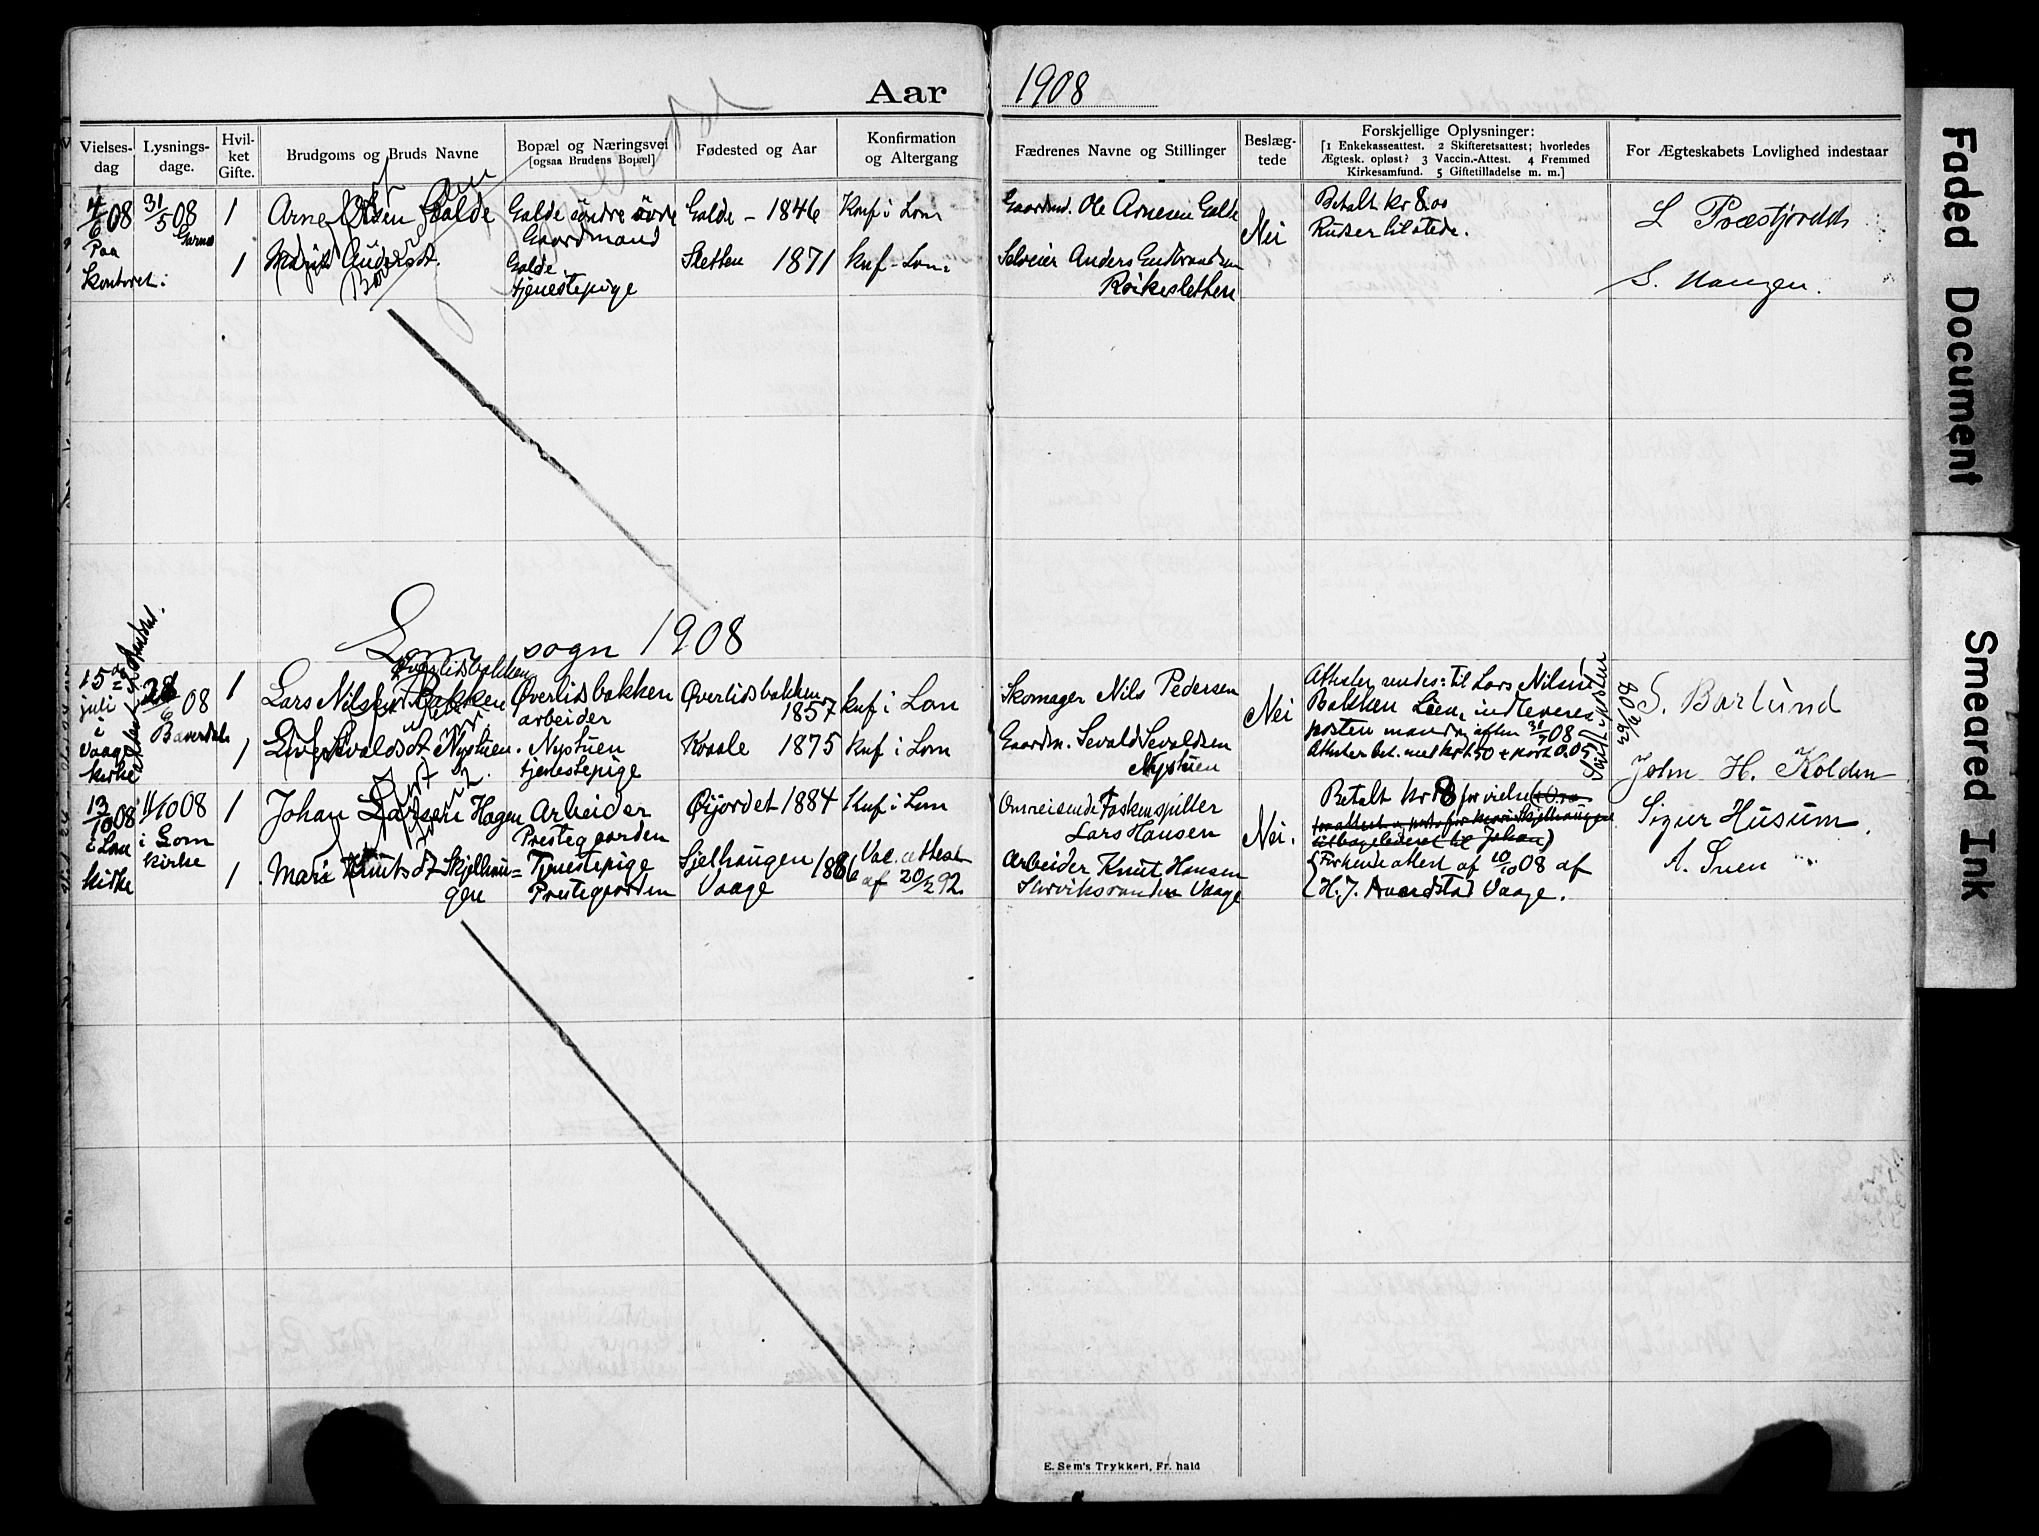 Aar 1908
Vielses-
dag
Lysnings-
dage.
Hvil-
ket
Gifte.
Brudgoms og Bruds Navne
Bopæl og Næringsvei
[ogsaa Brudens Bopæl]
Fødested og Aar
Konfirmation
og Altergang
Fædrenes Navne og Stillinger
Beslæg-
tede
Forskjellige Oplysninger:
[1 Enkekasseattest. 2 Skifteretsattest; hvorledes
Ægtesk. opløst? 3 Vaccin.-Attest. 4 Fremmed
Kirkesamfund. 5 Giftetilladelse m. m.]
For Ægteskabets Lovlighed indestaar
4/6 08
Paa
Kontoret.
31/5 08
Garmo
1
Arne Olsen Galde
Galde søndre øvre
Gaardmand
Galde – 1846
Konf i Lom
Gaardmd. Ole Arnesen Galde
Nei
Betalt kr 8.00
L Præstjordet
1
Marit Andersdt.
Galde
tjenestepige
Sletten 1871
Knf – Lom
Selveier Anders Gudbrandsen
Røikesletten
S. Haugen.
Lom sogn 1908
15de
juli
i
Vaage
kirke
28/6 08
Bæverdal
1
Lars Nilsen Bakken
Øverlisbakken
Øverlisbakken
arbeider
Øverlisbakken
1857
Knf i Lom
Skomager Nils Pedersen
Nei
Attester sendes til Lars Nilsen
Bakken Lien, indleveres
posten mandag aften 31/7 08
Attester bet. med kr 1.50 + porto 0.05
29/6 08
S. Barlund
1
Live Sevaldsdt Nystuen.
Nystuen
tjenestepige
Kvaale 1875
Knf i Lom
Gaardm. Sevald Sevaldsen
Nystuen
John H. Kolden
13/10 08
i Lom
kirke
11/10 08
i Lom
kirke
1
Johan Larsen Hagen
Arbeider
Prestegaarden
Øijordet 1884
Knf i Lom
Omreisende
Lars Hansen
Nei.
Betalt kr 8 for vielse
Sigur Husum.
1
Mari Knutsdt Skjelhau=
gen
Tjenestepige
Prestegaarden
Sjelhaugen 1886
Vaage
Vac. attest
af 20/2 92.
Arbeider Knut Hansen
Vaage
Forkyndeattest af 10/10 08 af
H. J. Aaardstad Vaage.
A. Sven
E. Sem's Trykkeri, Fr. hald
Faded Document
Smeared Ink